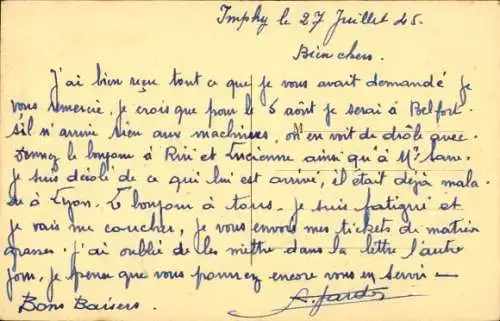 Imphy le 27 Juillet 45.
Bien chers.
J'ai bien reçu tout ce que je vous avait demandé je
vous remercie, je crois que pour le 5 août je serai à Belfort
s'il n'arrive rien aux machines, on en voit de drôle avec.
Donnez le bonjour à Riri et Lucienne ainsi qu'à Mr
je suis désolé de ce qui lui est arrivé, il était déjà mala-
de à Lyon. Le bonjour à tous. je suis fatigué et
je vais me coucher, je vous envois mes tickets de matières
grasses. j'ai oublié de les mettre dans la lettre l'autre
jour, je pense que vous pourrez encore vous en servir —
Bons Baisers.